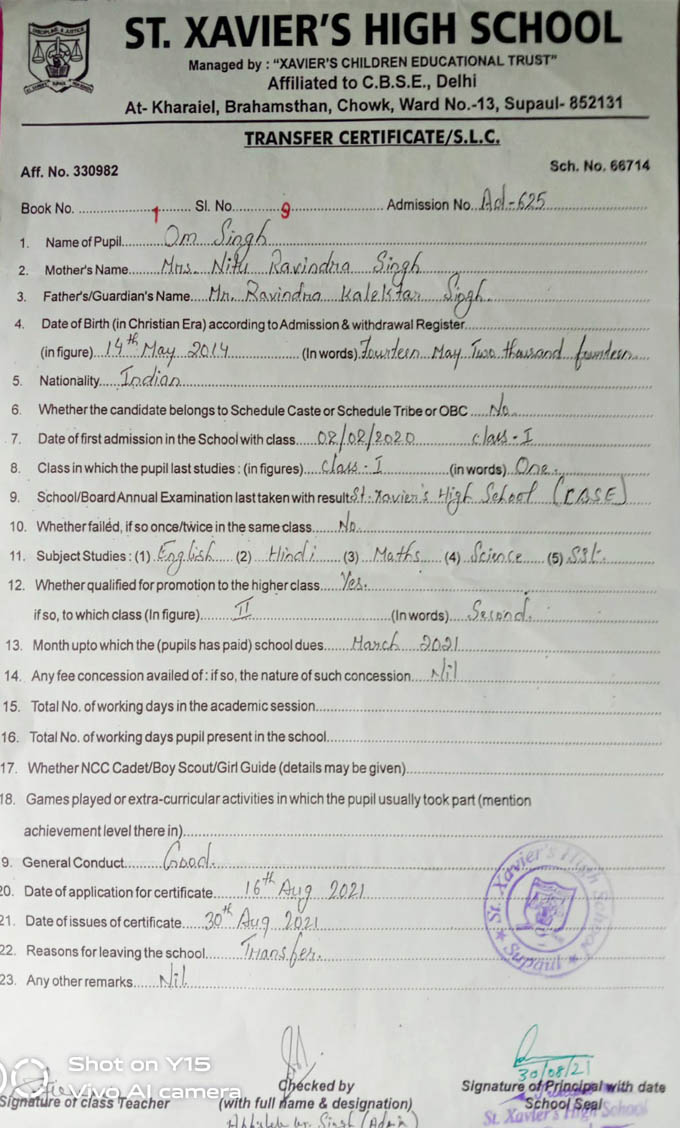 ST. XAVIER'S HIGH SCHOOL
Managed by : "XAVIER'S CHILDREN EDUCATIONAL TRUST"
Affiliated to C.B.S.E., Delhi
At- Kharaiel, Brahamsthan, Chowk, Ward No.-13, Supaul- 852131
TRANSFER CERTIFICATE/S.L.C.
Aff. No. 330982 Sch. No. 66714
Book No. 1 Sl. No. 9 Admission No. Ad-625
1. Name of Pupil Om Singh
2. Mother's Name Mrs. Nitu Ravindra Singh
3. Father's/Guardian's Name Mr. Ravindra Kalektar Singh.
4. Date of Birth (in Christian Era) according to Admission & withdrawal Register
(in figure) 14th May 2014 (In words) Fourteen May Two thousand fourteen
5. Nationality Indian
6. Whether the candidate belongs to Schedule Caste or Schedule Tribe or OBC No.
7. Date of first admission in the School with class 02/02/2020 class-I
8. Class in which the pupil last studies : (in figures) class-I (in words) One.
9. School/Board Annual Examination last taken with result St. Xavier's High School (CBSE)
10. Whether failed, if so once/twice in the same class No
11. Subject Studies : (1) English (2) Hindi (3) Maths (4) Science (5) SSt.
12. Whether qualified for promotion to the higher class Yes.
if so, to which class (In figure) II (In words) Second.
13. Month upto which the (pupils has paid) school dues March 2021
14. Any fee concession availed of : if so, the nature of such concession Nil
15. Total No. of working days in the academic session
16. Total No. of working days pupil present in the school
17. Whether NCC Cadet/Boy Scout/Girl Guide (details may be given)
18. Games played or extra-curricular activities in which the pupil usually took part (mention
achievement level there in)
9. General Conduct Good.
20. Date of application for certificate 16th Aug 2021
21. Date of issues of certificate 30th Aug 2021
22. Reasons for leaving the school Transfer.
23. Any other remarks Nil
St. Xavier's High School
Supaul
30/08/21
Shot on Y15
Vivo AI camera
Signature of class Teacher
Checked by
(with full name & designation)
Signature of Principal with date
School Seal
St. Xavier's High School